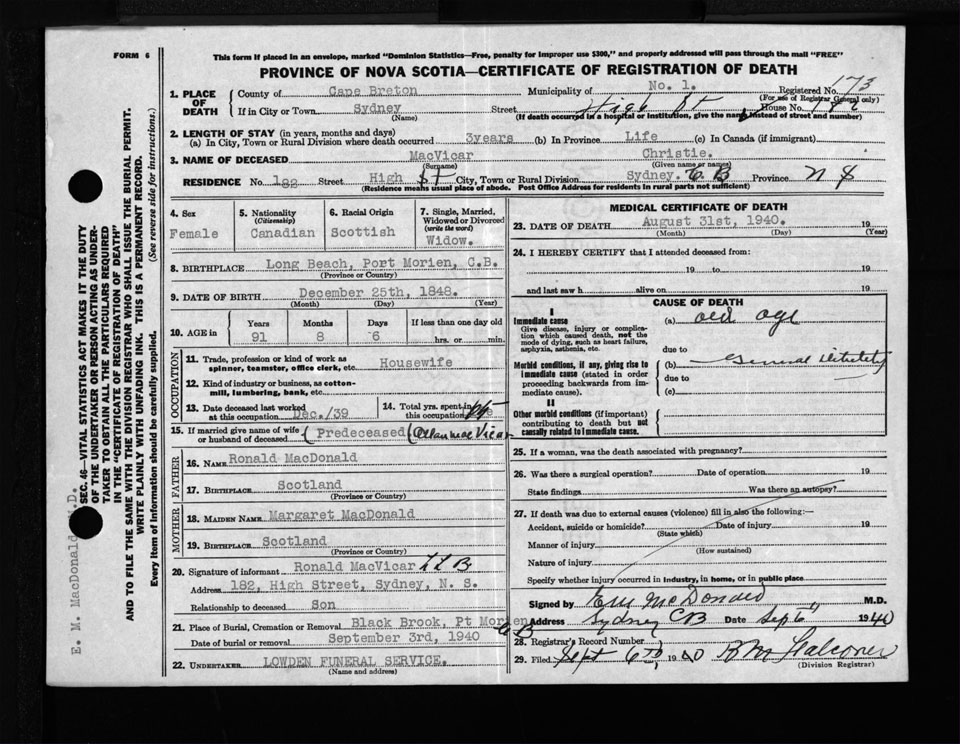 FORM 6
This form if placed in an envelope, marked "Dominion Statistics—Free, penalty for improper use $300," and properly addressed will pass through the mail "FREE"
PROVINCE OF NOVA SCOTIA—CERTIFICATE OF REGISTRATION OF DEATH
Registered No. 173
(For use of Registrar General only)
1. PLACE OF DEATH
County of Cape Breton Municipality of No. 1.
If in City or Town Sydney Street High St House No. 182
(Name) (If death occurred in a hospital or institution, give the name instead of street and number)
2. LENGTH OF STAY (in years, months and days)
(a) In City, Town or Rural Division where death occurred 3years (b) In Province Life (c) In Canada (if immigrant)
3. NAME OF DECEASED MacVicar Christie.
(Surname) (Given name or names)
RESIDENCE No. 182 Street High St City, Town or Rural Division Sydney. C B Province N S
(Residence means usual place of abode. Post Office Address for residents in rural parts not sufficient)
4. Sex
Female
5. Nationality
(Citizenship)
Canadian
6. Racial Origin
Scottish
7. Single, Married, Widowed or Divorced
(write the word)
Widow.
8. BIRTHPLACE Long Beach, Port Morien, C.B.
(Province or Country)
9. DATE OF BIRTH December 25th, 1848.
(Month) (Day) (Year)
10. AGE in
Years Months Days If less than one day old
91 8 6 hrs. or min.
OCCUPATION
11. Trade, profession or kind of work as spinner, teamster, office clerk, etc. Housewife
12. Kind of industry or business, as cotton-mill, lumbering, bank, etc.
13. Date deceased last worked at this occupation Dec./39
14. Total yrs. spent in this occupation
15. If married give name of wife or husband of deceased (Predeceased) (Allan MacVicar
FATHER
16. NAME Ronald MacDonald
17. BIRTHPLACE Scotland
(Province or Country)
MOTHER
18. MAIDEN NAME Margaret MacDonald
19. BIRTHPLACE Scotland
(Province or Country)
20. Signature of informant Ronald MacVicar
Address 182, High Street, Sydney, N. S.
Relationship to deceased Son
21. Place of Burial, Cremation or Removal Black Brook, Pt Morien
C B
Date of burial or removal September 3rd, 1940
22. UNDERTAKER LOWDEN FUNERAL SERVICE.
(Name and address)
MEDICAL CERTIFICATE OF DEATH
23. DATE OF DEATH August 31st, 1940. 19
(Month) (Day) (Year)
24. I HEREBY CERTIFY that I attended deceased from:
19 to 19
and last saw h alive on 19
CAUSE OF DEATH
I
Immediate cause
Give disease, injury or complication which caused death, not the mode of dying, such as heart failure, asphyxia, asthenia, etc.
(a) old age
due to
Morbid conditions, if any, giving rise to immediate cause (stated in order proceeding backwards from immediate cause).
(b) General debility
due to
(c)
II
Other morbid conditions (if important) contributing to death but not causally related to immediate cause.
25. If a woman, was the death associated with pregnancy?
26. Was there a surgical operation? Date of operation 19
State findings Was there an autopsy?
27. If death was due to external causes (violence) fill in also the following:—
Accident, suicide or homicide? Date of injury 19
(State which)
Manner of injury
(How sustained)
Nature of injury
Specify whether injury occurred in industry, in home, or in public place
Signed by E M McDonald M.D.
Address Sydney C B Date Sep 6 1940
28. Registrar's Record Number
29. Filed Sept 6th, 1940 R M Falconer
(Division Registrar)
SEC. 46—VITAL STATISTICS ACT MAKES IT THE DUTY
OF THE UNDERTAKER OR PERSON ACTING AS UNDER-
TAKER TO OBTAIN ALL THE PARTICULARS REQUIRED
IN THE "CERTIFICATE OF REGISTRATION OF DEATH"
AND TO FILE THE SAME WITH THE DIVISION REGISTRAR WHO SHALL ISSUE THE BURIAL PERMIT.
WRITE PLAINLY WITH UNFADING INK. THIS IS A PERMANENT RECORD.
Every item of information should be carefully supplied. (See reverse side for instructions.)
E. M. MacDonald M.D.